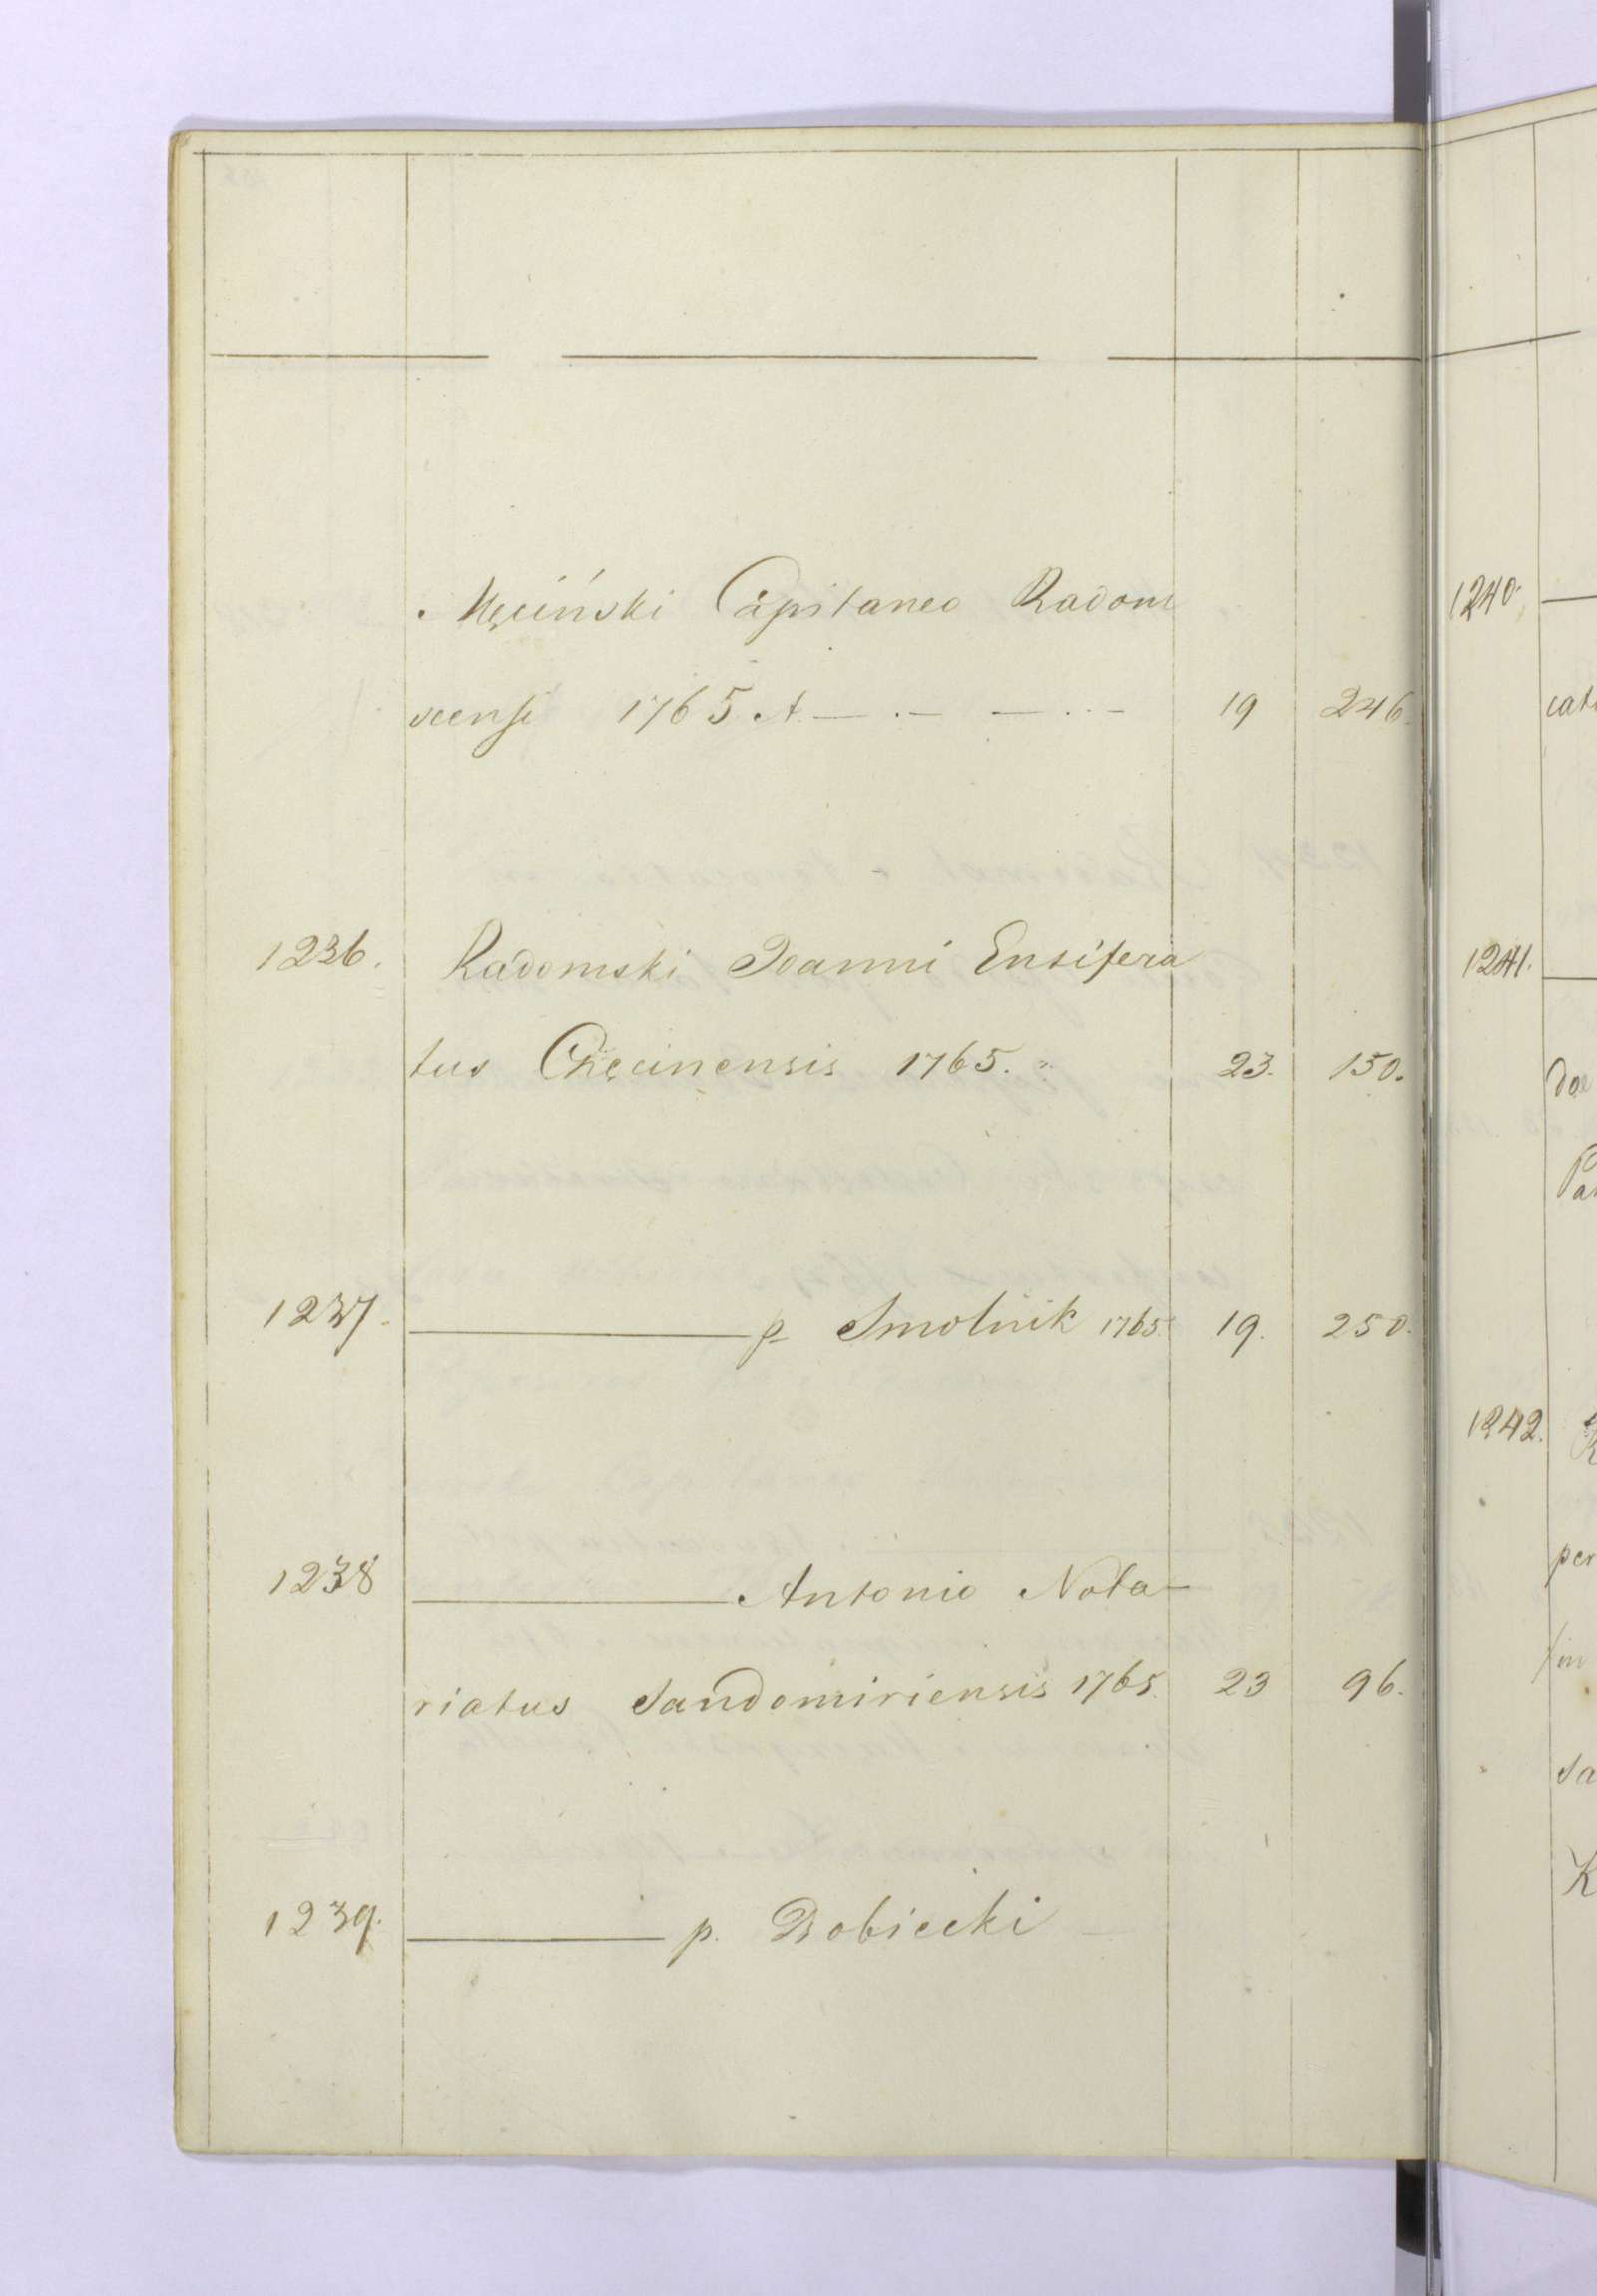 Męciński Capitaneo Radom
scensi 1765 A. — . — — . . — 19 246.
1236. Radomski Joanni Ensifera
tus Chęcinensis 1765. " 23. 150.
1237. ——— p Smolnik 1765. 19. 250.
1238 ——— Antonio Nota-
riatus Sandomiriensis 1765. 23 96.
1239. ——— p. Dobiecki
1240. —
cat
1241. —
Do
Pa
1242. R
per
in
Sa
K